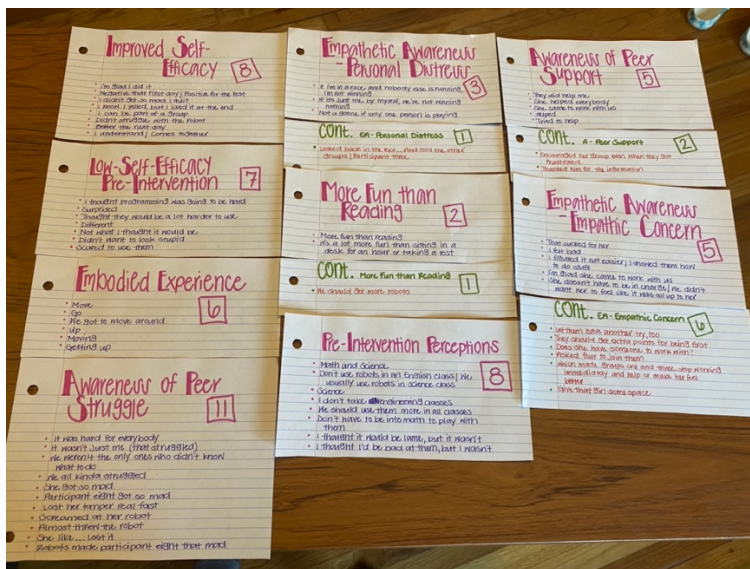 Improved Self-
Efficacy 8
• I'm glad I did it
• Negative that first day/ Positive for the rest
• I didn't get so mad, I quit
• I know I yelled, but I liked it at the end
• I can be part of a group
• Didn't struggle with the robot
• Better the next day
• I understand/ Comes together
Low-Self-Efficacy
Pre-Intervention 7
• I thought programming was going to be hard
• Surprised
• Thought they would be a lot harder to use
• Different
• Not what I thought it would be
• Didn't want to look stupid
• Scared to use them
Embodied Experience
6
• Move
• Go
• We got to move around
• Up
• Moving
• Getting up
Awareness of Peer
Struggle 11
• It was hard for everybody
• It wasn't just me (that struggled)
• We weren't the only ones who didn't know
what to do
• We all kinda struggled
• She got so mad
• Participant eight got so mad
• Lost her temper real fast
• Screamed at her robot
• Almost threw the robot
• She like... Lost it
• Robots made participant eight that mad
Empathetic Awareness
- Personal Distress
3
• If I'm in a race and nobody else is running,
I'm not winning
• If it's just me by myself, we're not winning
nothing
• Not a game if only one person is playing
Cont. EA - Personal Distress 1
• Looked back in the race... And told the other
groups/ Participant three
More Fun than
Reading 2
• More fun than reading
• It's a lot more fun than sitting in a
desk for an hour or taking a test
Cont. More Fun than Reading 1
• We should get more robots
Pre-Intervention Perceptions
8
• Math and Science
• Don't use robots in an English class/ We
usually use robots in science class
• Science
• I don't take engineering classes
• We should use them more in all classes
• Don't have to be into math to play with
them
• I thought it would be lame, but it wasn't
• I thought I'd be bad at them, but I wasn't
Awareness of Peer
Support 5
• They did help me
• She helped everybody
• She came to work with us
• Helped
• Tried to help
Cont. A - Peer Support 2
• Encouraged her group even when they got
frustrated.
• Thanked him for the information
Empathetic Awareness
- Empathic Concern
5
• That sucked for her
• I felt bad
• I figured it out easier/ I showed them how
to do stuff
• I'm glad she came to work with us
• She doesn't have to be in charge/ We didn't
want her to feel like it was all up to her
Cont. EA - Empathic Concern 6
• Let them have another try, too
• They should get extra points for being first
• Does she have someone to work with?
• Asked four to join them
• Which made groups one and three stop working
immediately and help or make her feel
better
• Give that girl some space